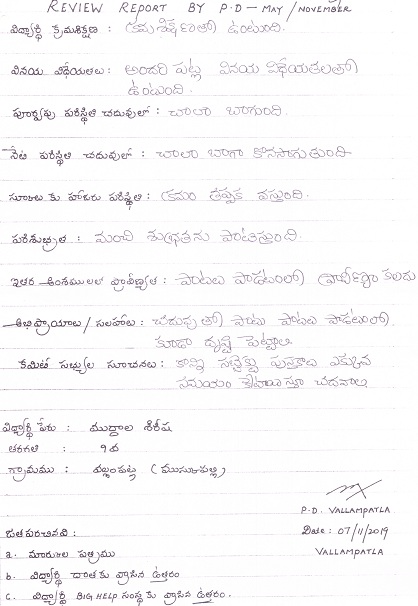 REVIEW REPORT BY P.D - MAY / NOVEMBER
విద్యార్థి క్రమశిక్షణ : క్రమశిక్షణతో ఉంటుంది.
వినయ విధేయతలు : అందరి పట్ల వినయ విధేయతలతో
ఉంటుంది.
పూర్వపు పరిస్థితి చదువులో : చాలా బాగుంది.
నేటి పరిస్థితి చదువులో : చాలా బాగా కొనసాగుతుంది
స్కూలు కు హాజరు పరిస్థితి : క్రమం తప్పక వస్తుంది.
పరిశుభ్రత : మంచి శుభ్రతను పాటిస్తుంది.
ఇతర అంశములలో ప్రావీణ్యత : పాటలు పాడటంలో ప్రావీణ్యం కలదు
అభిప్రాయాలు / సలహాలు : చదువుతో పాటు పాటలు పాడటంలో
కూడా దృష్టి పెట్టాలి
కమిటి సభ్యుల సూచనలు : కాన్ని సబ్జెక్టు పుస్తకాల ఎక్కువ
సమయం కేటాయిస్తూ చదవాలి
విద్యార్థి పేరు : ముద్దాల శిరీష
తరగతి : 9వ
గ్రామము : వల్లంపట్ల (ముసునూరుపల్లి)
P.D. VALLAMPATLA
జతపరచినవి : Date : 07/11/2019
a. మార్కుల పత్రము VALLAMPATLA
b. విద్యార్థి దాతకు వ్రాసిన ఉత్తరం
c. విద్యార్థి BIG HELP సంస్థ కు వ్రాసిన ఉత్తరం.